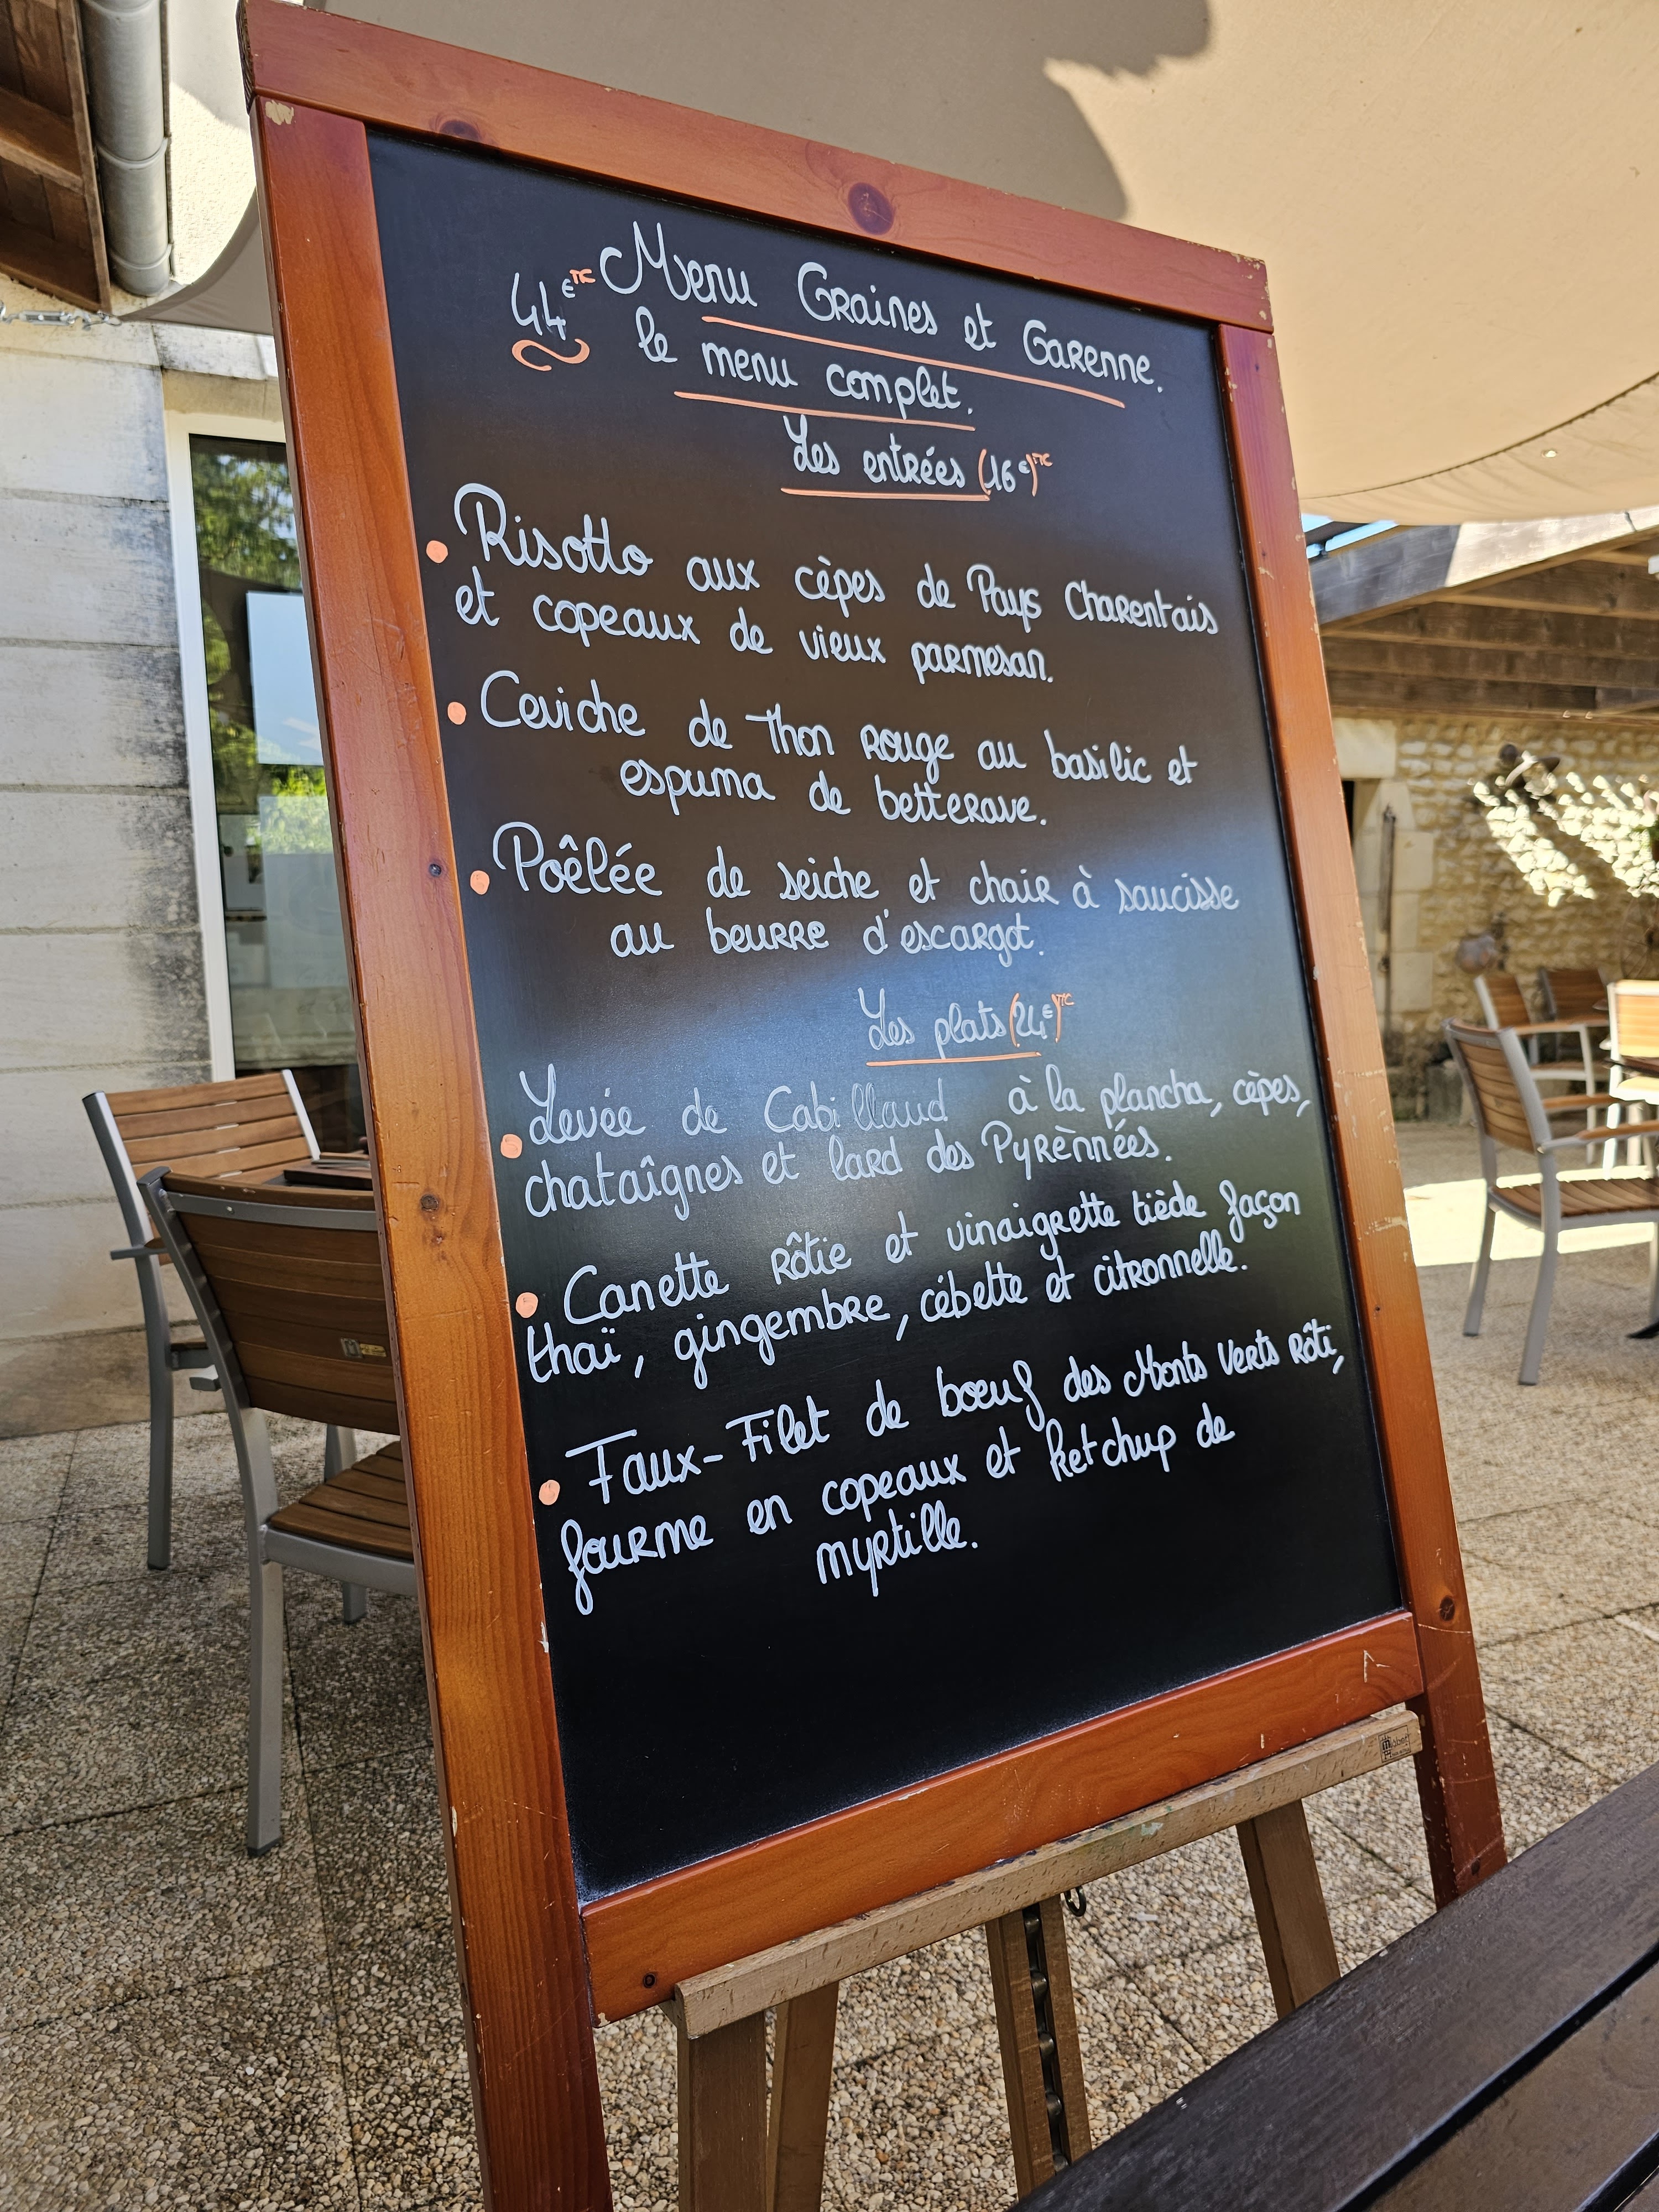 Menu Graines et Garenne.
44€ TTC le menu complet.
Les entrées (16€) TTC
• Risotto aux cèpes de Pays Charentais
et copeaux de vieux parmesan.
• Ceviche de Thon rouge au basilic et
espuma de betterave.
• Poêlée de seiche et chair à saucisse
au beurre d'escargot.
Les plats (24€) TTC
• Levée de Cabillaud à la plancha, cèpes,
chataîgnes et lard des Pyrènnées.
• Canette rôtie et vinaigrette tiède façon
thaï, gingembre, cébette et citronnelle.
• Faux-Filet de boeuf des Monts Verts rôti,
fourme en copeaux et ketchup de
myrtille.